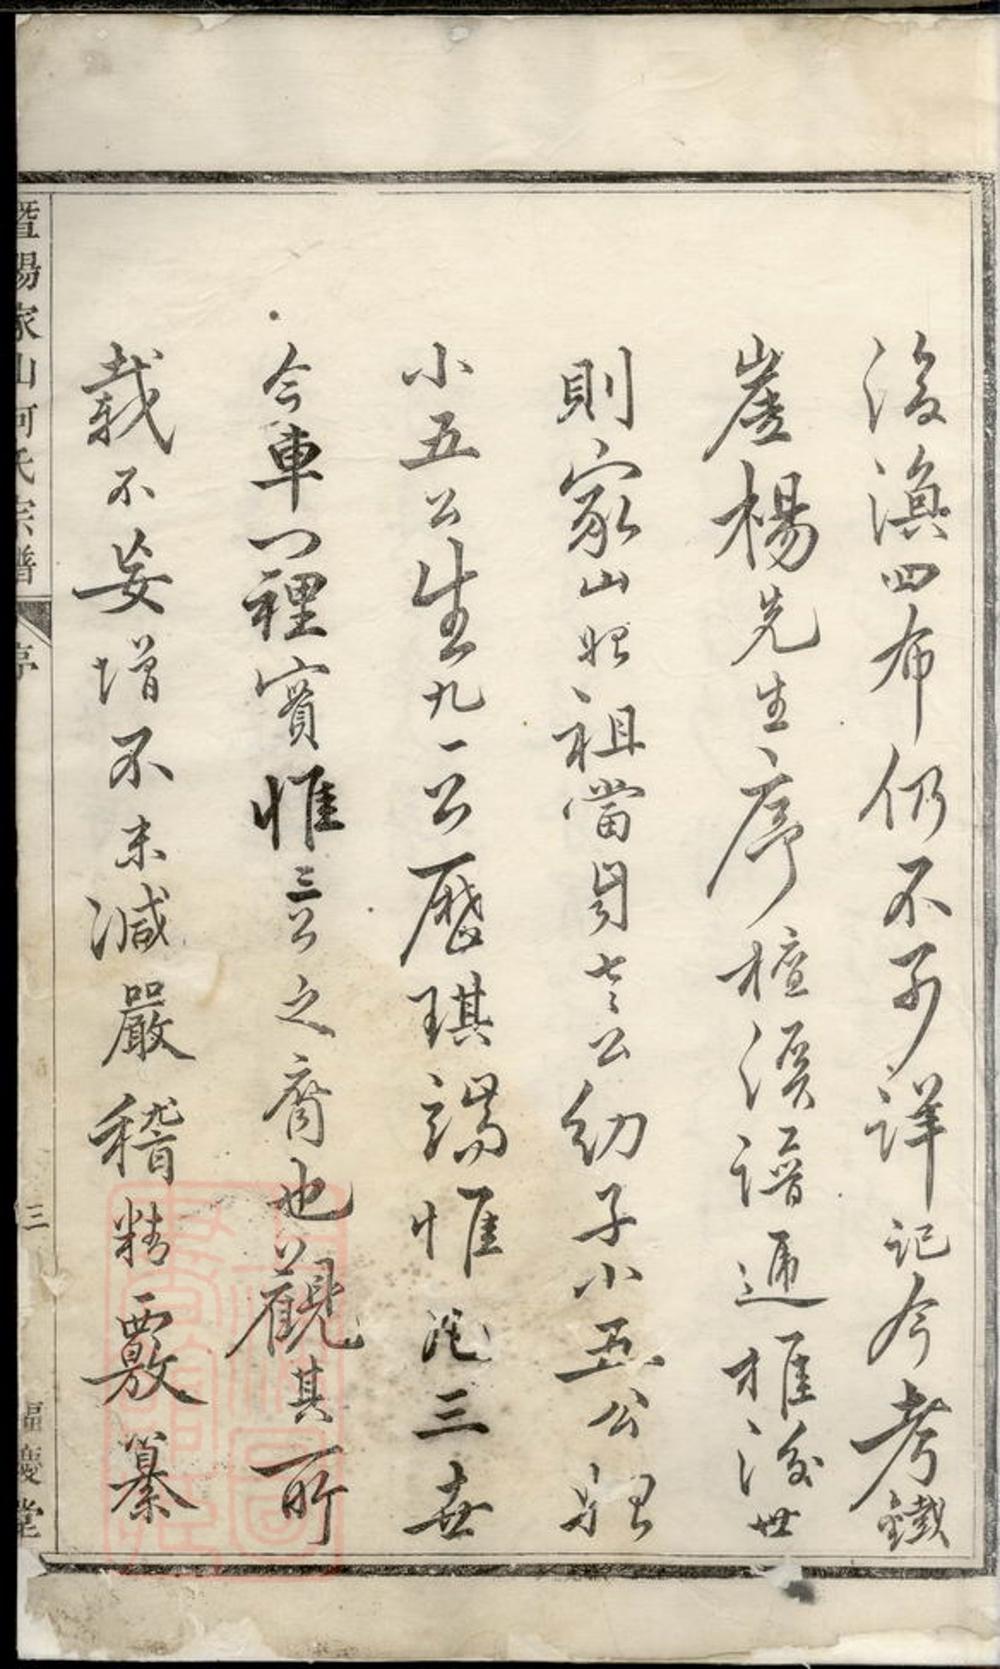 後滇四布仍不可詳記今考鐵
崖楊先生序檀溪譜遞推後世
則家山始祖當曾七公幼子小五公
小五公生九一公歷琪瑞惟 三世
今車門裡實惟三公之裔也觀其所
載不妄增不末減嚴稽精覈纂
暨陽家山何氏宗譜 序 三 福慶堂